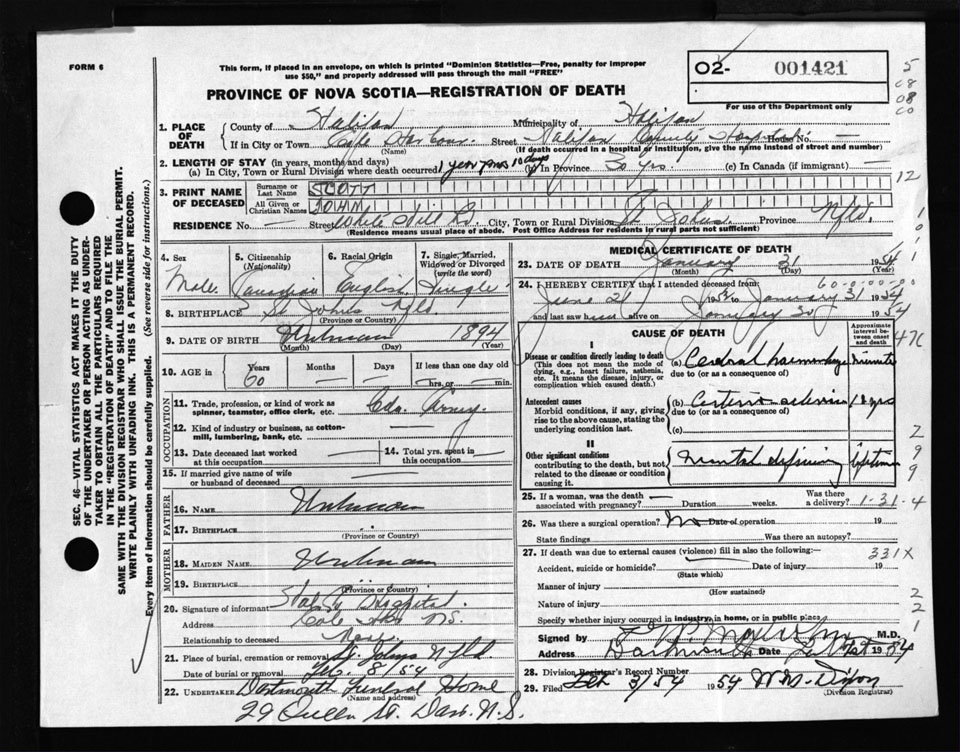 FORM 6
This form, if placed in an envelope, on which is printed "Dominion Statistics—Free, penalty for improper
use $50," and properly addressed will pass through the mail "FREE"
O2- 001421
For use of the Department only
PROVINCE OF NOVA SCOTIA—REGISTRATION OF DEATH
5
08
08
00
12
1. PLACE OF DEATH
County of Halifax Municipality of Halifax
If in City or Town Cole Harbour Street Halifax County Hospital House No. —
(Name) (If death occurred in a hospital or institution, give the name instead of street and number)
2. LENGTH OF STAY (in years, months and days)
(a) In City, Town or Rural Division where death occurred 1 year 7mos 10 days (b) In Province 30 yrs. (c) In Canada (if immigrant) —
3. PRINT NAME OF DECEASED
Surname or Last Name SCOTT
All Given or Christian Names JOHN
RESIDENCE No. — Street White Hill Rd. City, Town or Rural Division St. Johns. Province Nfld.
(Residence means usual place of abode. Post Office Address for residents in rural parts not sufficient)
4. Sex
Male.
5. Citizenship
(Nationality)
Canadian
6. Racial Origin
English
7. Single, Married, Widowed or Divorced
(write the word)
Single
8. BIRTHPLACE St. Johns Nfld.
(Province or Country)
9. DATE OF BIRTH Unknown 1894
(Month) (Day) (Year)
10. AGE in
Years Months Days If less than one day old
60 — — hrs. or min.
OCCUPATION
11. Trade, profession, or kind of work as
spinner, teamster, office clerk, etc. Cdn. Army.
12. Kind of industry or business, as cotton-
mill, lumbering, bank, etc. —
13. Date deceased last worked
at this occupation —
14. Total yrs. spent in
this occupation —
15. If married give name of wife
or husband of deceased —
FATHER
16. NAME Unknown
17. BIRTHPLACE
(Province or Country)
MOTHER
18. MAIDEN NAME Unknown
19. BIRTHPLACE
(Province or Country)
20. Signature of informant Hospital.
Address Cole Hbr N.S.
Relationship to deceased None.
21. Place of burial, cremation or removal St. Johns Nfld
Date of burial or removal Feb. 8/54
22. UNDERTAKER Dartmouth Funeral Home
(Name and address)
29 Queen St. Dart. N.S.
MEDICAL CERTIFICATE OF DEATH
23. DATE OF DEATH January 31 1954
(Month) (Day) (Year)
60-0-00-00
24. I HEREBY CERTIFY that I attended deceased from:
June 21 1952 to January 31 1954
and last saw him alive on January 30 1954
CAUSE OF DEATH
Approximate interval between onset and death
476
I
Disease or condition directly leading to death
(This does not mean the mode of
dying, e.g., heart failure, asthenia,
etc. It means the disease, injury, or
complication which caused death.)
(a) Cerebral haemorrhage minutes
due to (or as a consequence of)
Antecedent causes
Morbid conditions, if any, giving
rise to the above cause, stating the
underlying condition last.
(b)
due to (or as a consequence of)
(c)
II
Other significant conditions
contributing to the death, but not
related to the disease or condition
causing it.
25. If a woman, was the death
associated with pregnancy? — Duration weeks. Was there
a delivery? 1-31-4
26. Was there a surgical operation? No Date of operation 19
State findings Was there an autopsy?
27. If death was due to external causes (violence) fill in also the following:— 331X
Accident, suicide or homicide? Date of injury 19
(State which)
Manner of injury
(How sustained)
Nature of injury
Specify whether injury occurred in industry, in home, or in public place
Signed by M.D.
Address Dartmouth Date 1954
28. Division Registrar's Record Number
29. Filed Feb 3/54 1954 W.M. Dixon
(Division Registrar)
SEC. 46—VITAL STATISTICS ACT MAKES IT THE DUTY
OF THE UNDERTAKER OR PERSON ACTING AS UNDER-
TAKER TO OBTAIN ALL THE PARTICULARS REQUIRED
IN THE "REGISTRATION OF DEATH" AND TO FILE THE
SAME WITH THE DIVISION REGISTRAR WHO SHALL ISSUE THE BURIAL PERMIT.
WRITE PLAINLY WITH UNFADING INK. THIS IS A PERMANENT RECORD.
Every item of information should be carefully supplied. (See reverse side for instructions.)